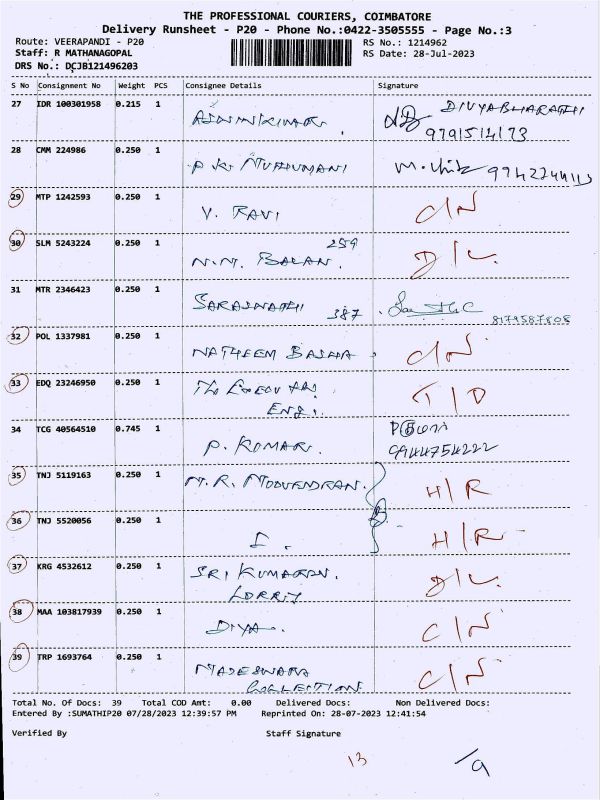 THE PROFESSIONAL COURIERS, COIMBATORE
Delivery Runsheet - P20 - Phone No.:0422-3505555 - Page No.:3
Route: VEERAPANDI - P20
RS No.: 1214962
Staff: R MATHANAGOPAL
RS Date: 28-Jul-2023
DRS No.: DCJB121496203
S No Consignment No Weight PCS Consignee Details Signature
27 IDR 100301958 0.215 1 DIVYABHARATHI
9791514173
28 CMM 224986 0.250 1 P.K. MUTHUMANI
29 MTP 1242593 0.250 1 V. RAVI C/N
30 SLM 5243224 0.250 1 259
N.N. BALAN. D/L
31 MTR 2346423 0.250 1 SARASWATHI 387
8179587805
32 POL 1337981 0.250 1 NATHEEM BASHA C/N
33 EDQ 23246950 0.250 1 The T/D
ENGI.
34 TCG 40564510 0.745 1 P. KUMAR.
9944754222
35 TNJ 5119163 0.250 1 M.R. MOOVENDRAN. H/R
36 TNJ 5520056 0.250 1 H/R
37 KRG 4532612 0.250 1 SRI KUMARAN. D/L
LORRY
38 MAA 103817939 0.250 1 DIYA. C/N
39 TRP 1693764 0.250 1 MADESWARA C/N
COLLECTION
Total No. Of Docs: 39 Total COD Amt: 0.00 Delivered Docs: Non Delivered Docs:
Entered By :SUMATHIP20 07/28/2023 12:39:57 PM Reprinted On: 28-07-2023 12:41:54
Verified By Staff Signature
13 /9